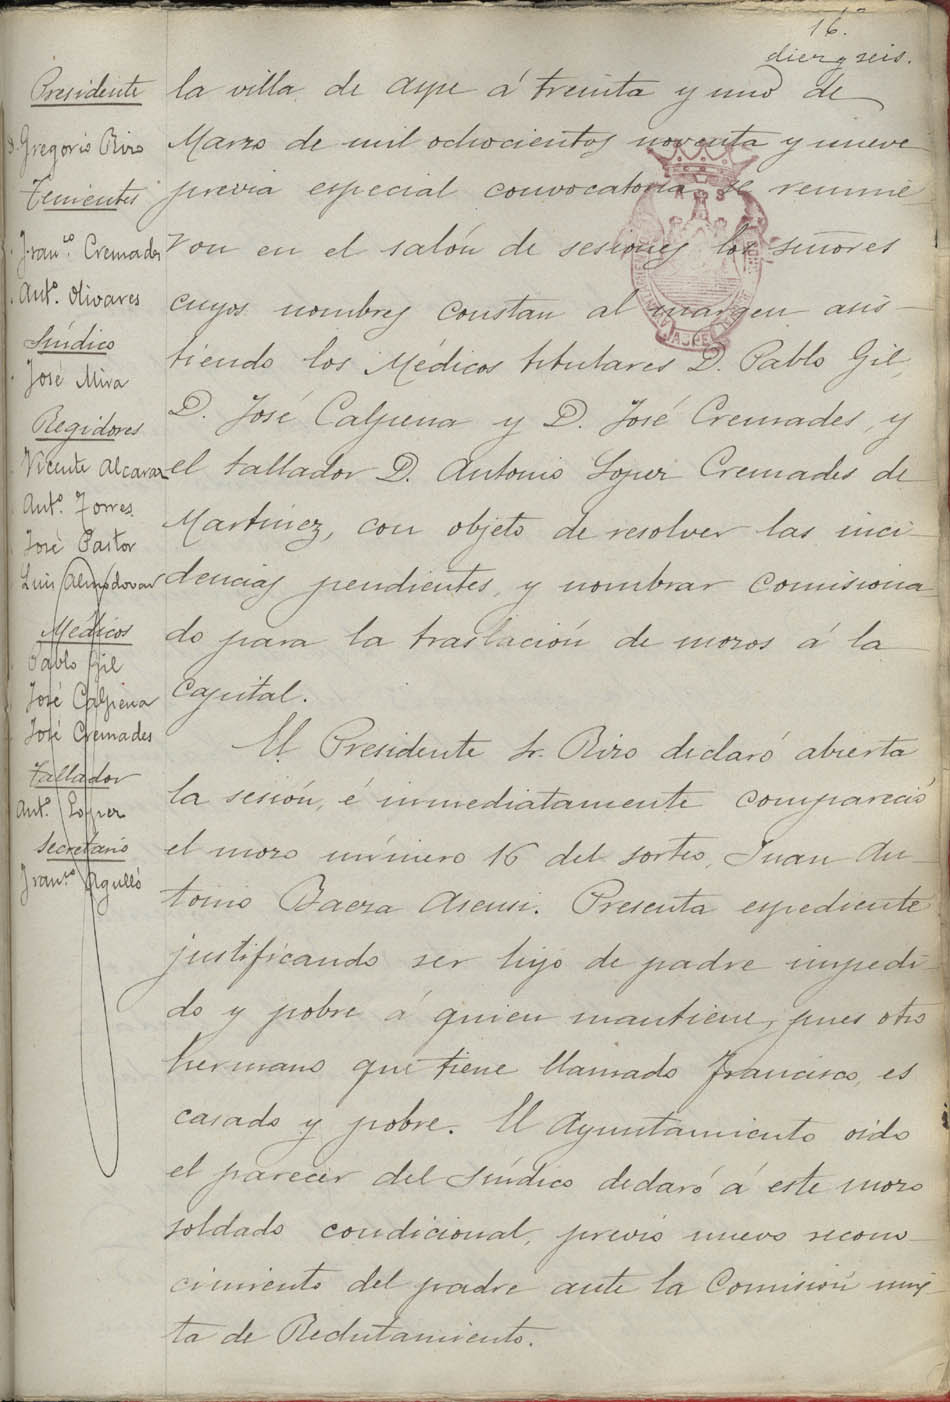 16.
diez y seis.
Presidente
D. Gregorio Rizo
Tenientes
Franco. Cremades
Anto. Olivares
Síndico
José Mira
Regidores
Vicente Alcaraz
Anto. Torres
José Pastor
Luis Almodovar
Médicos
Pablo Gil
José Calpena
José Cremades
Tallador
Anto. Lopez
Secretario
Franco. Agulló
la villa de Aspe á treinta y uno de
Marzo de mil ochocientos noventa y nueve
previa especial convocatoria se reunie
ron en el salón de sesiones los señores
cuyos nombres constan al margen asis-
tiendo los Médicos titulares D. Pablo Gil,
D. José Calpena y D. José Cremades, y
el tallador D. Antonio Lopez Cremades de
Martinez, con objeto de resolver las inci-
dencias pendientes, y nombrar comisiona
do para la traslación de mozos á la
Capital.
El Presidente Sr. Rizo declaró abierta
la sesión, é inmediatamente compareció
el mozo número 16 del sorteo, Juan An-
tonio Baeza Asensi. Presenta expediente
justificando ser hijo de padre impedi-
do y pobre á quien mantiene, pues otro
hermano que tiene llamado Francisco, es
casado y pobre. El Ayuntamiento oido
el parecer del Síndico declaró á este mozo
soldado condicional, previo nuevo recono-
cimiento del padre ante la Comisión mix-
ta de Reclutamiento.